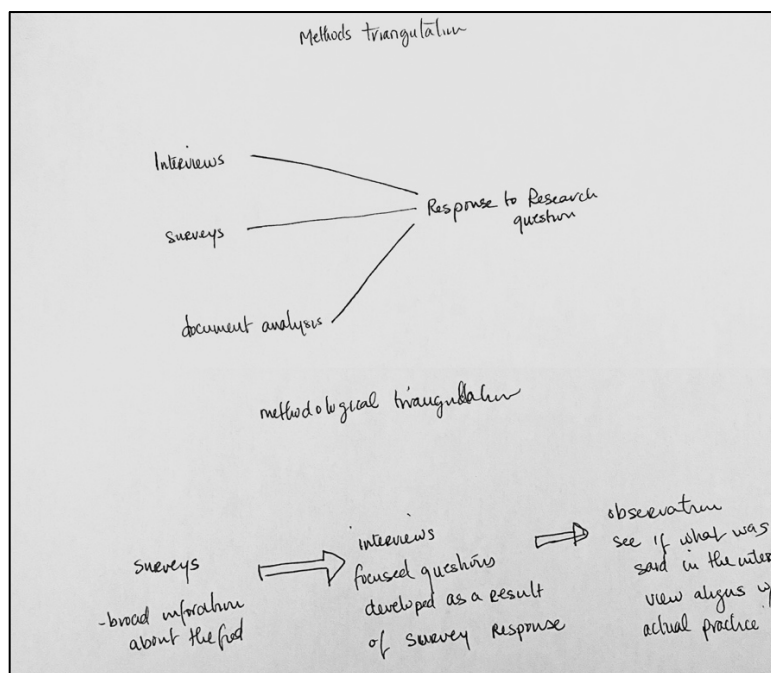 Methods triangulation
Interviews
Surveys
document analysis
Response to Research
question
methodological triangulation
Surveys
-broad inforation
about the
interviews
focused questions
developed as a result
of survey Response
observation
see if what was
said in the inter
view aligns w
actual practice